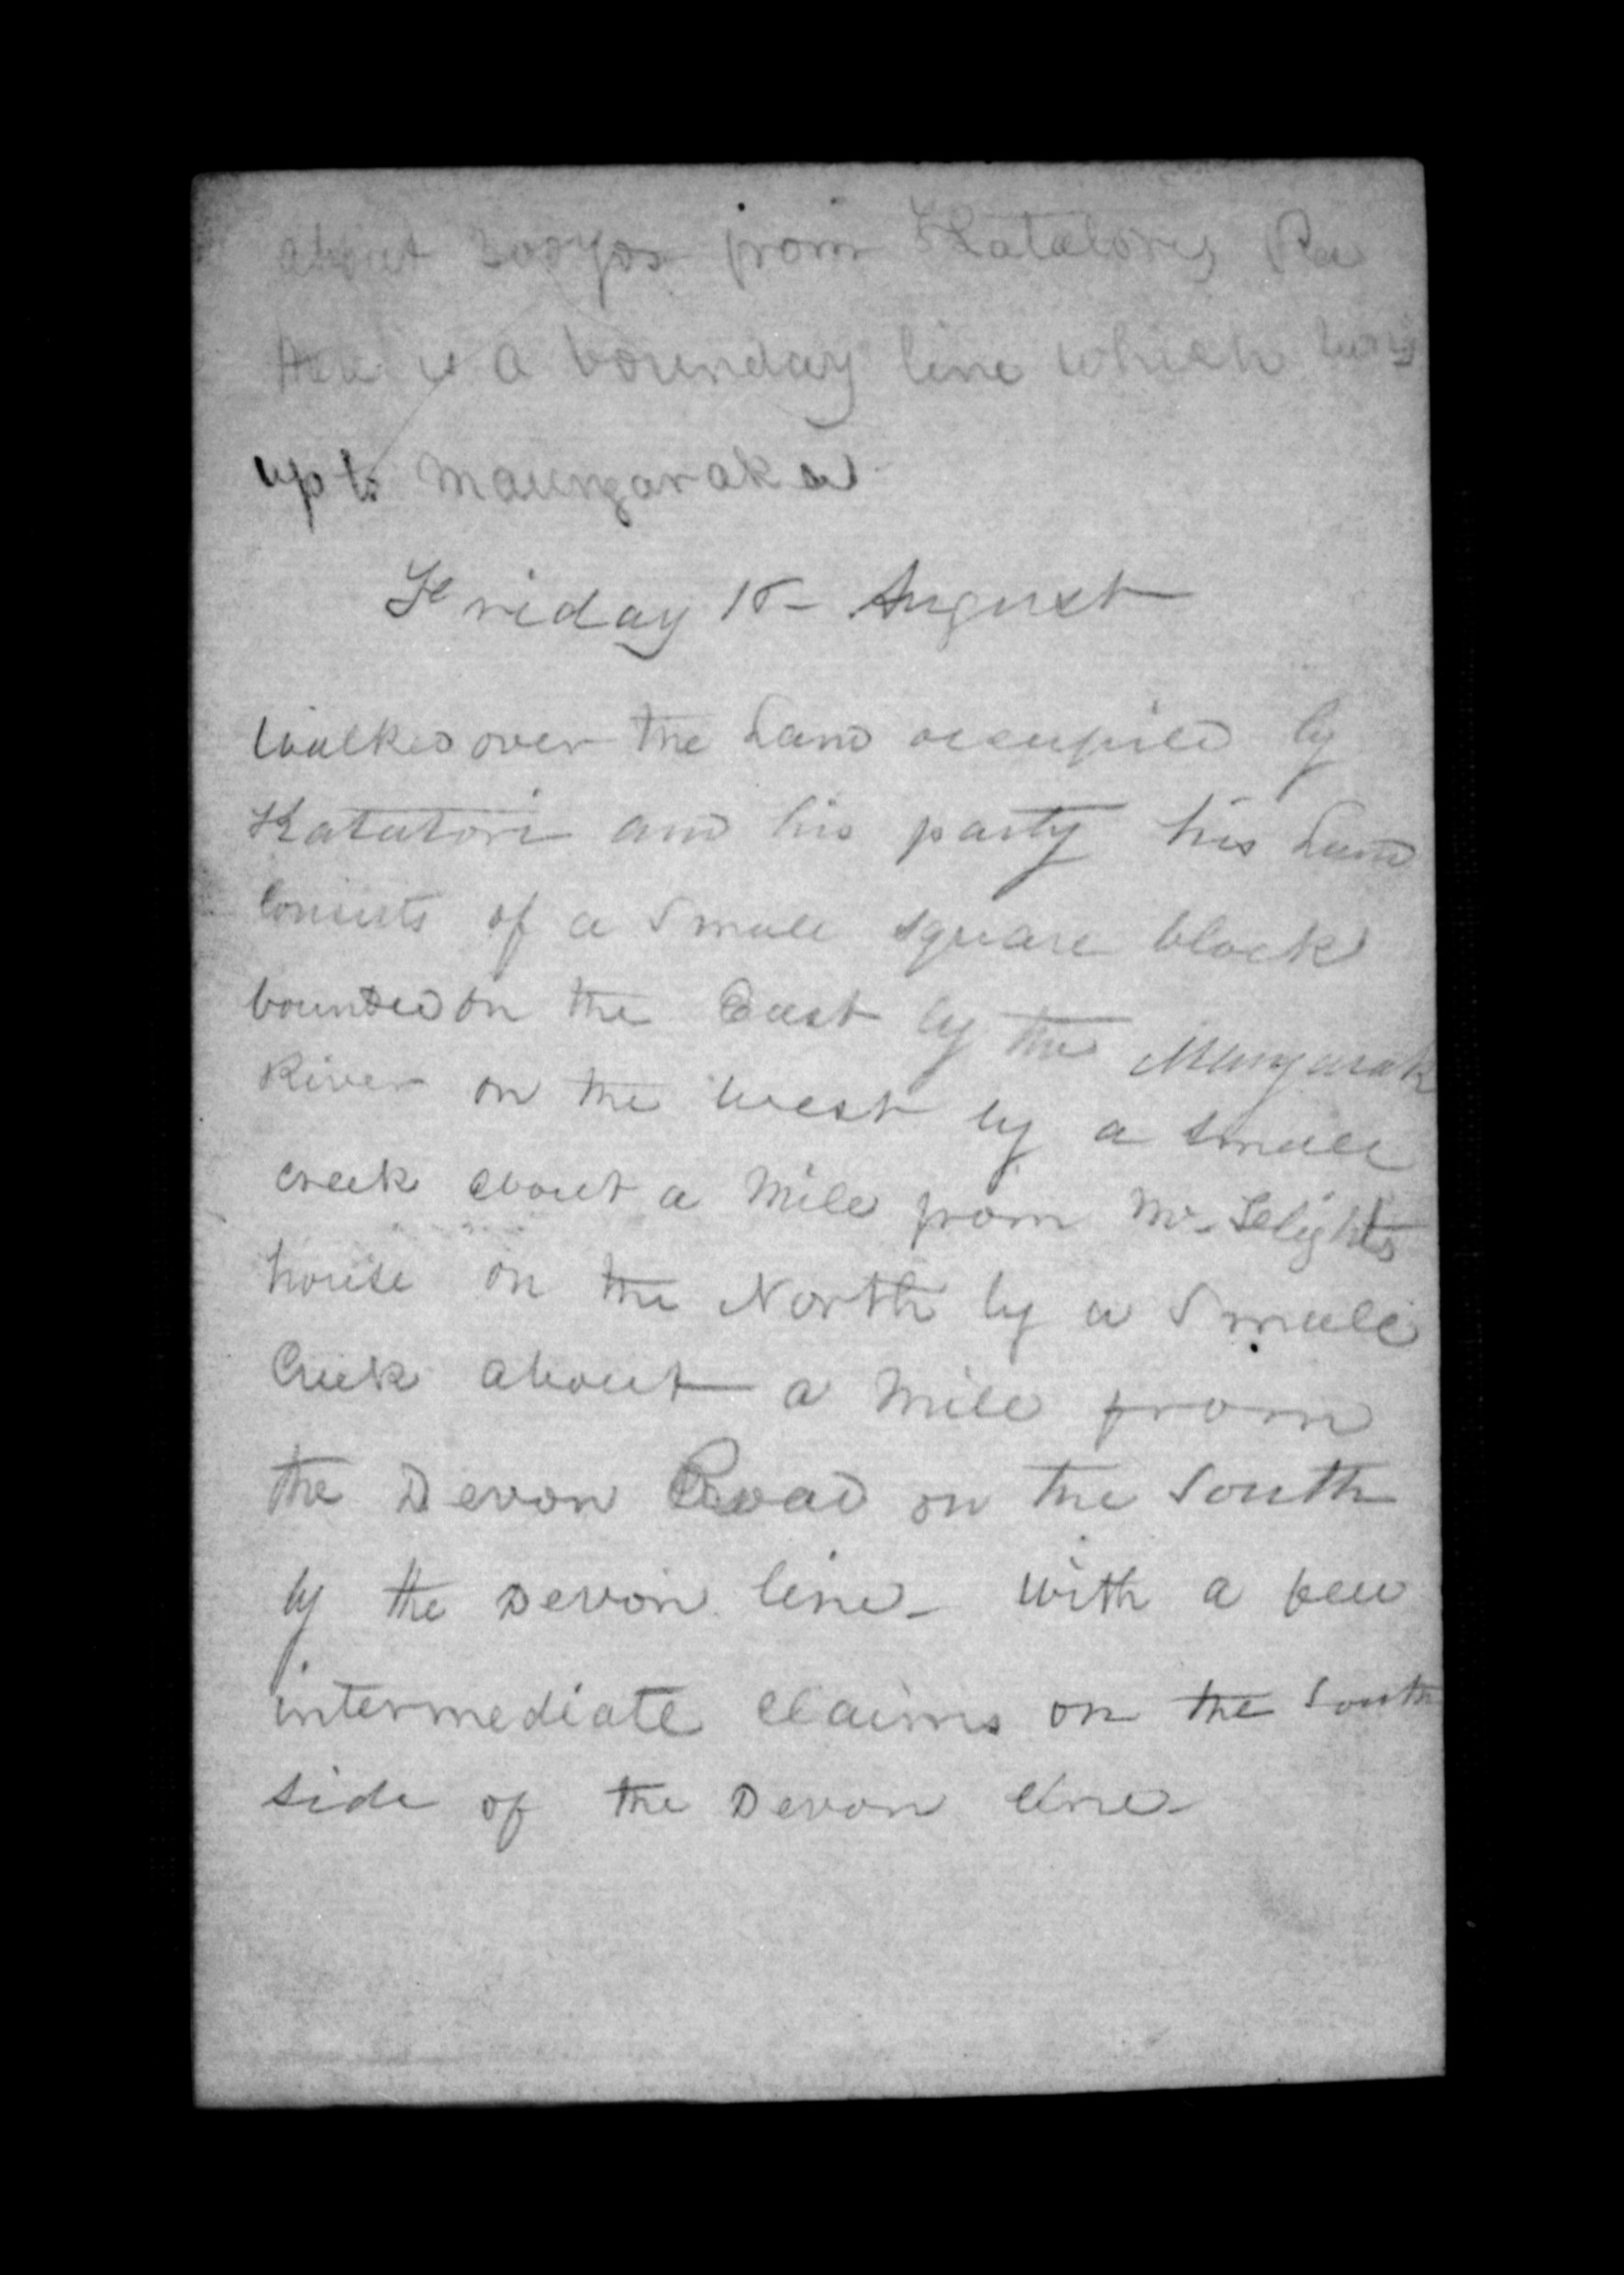 about 300 yds from Katatore's Pa
there is a bounday line which runs
up to Maungaraka
Friday 18- August
Walked over the Land occupied by
Katatori and his party his Land
Consists of a Small square block
bounded on the East by the Mangarak
River on the West by a small
creek about a Mile from Mr Flights
house on the North by a Small
Creek about a Mile from
the Devon Road on the South
by the Devon line - with a few
intermediate Claims on the South
side of the Devon line -